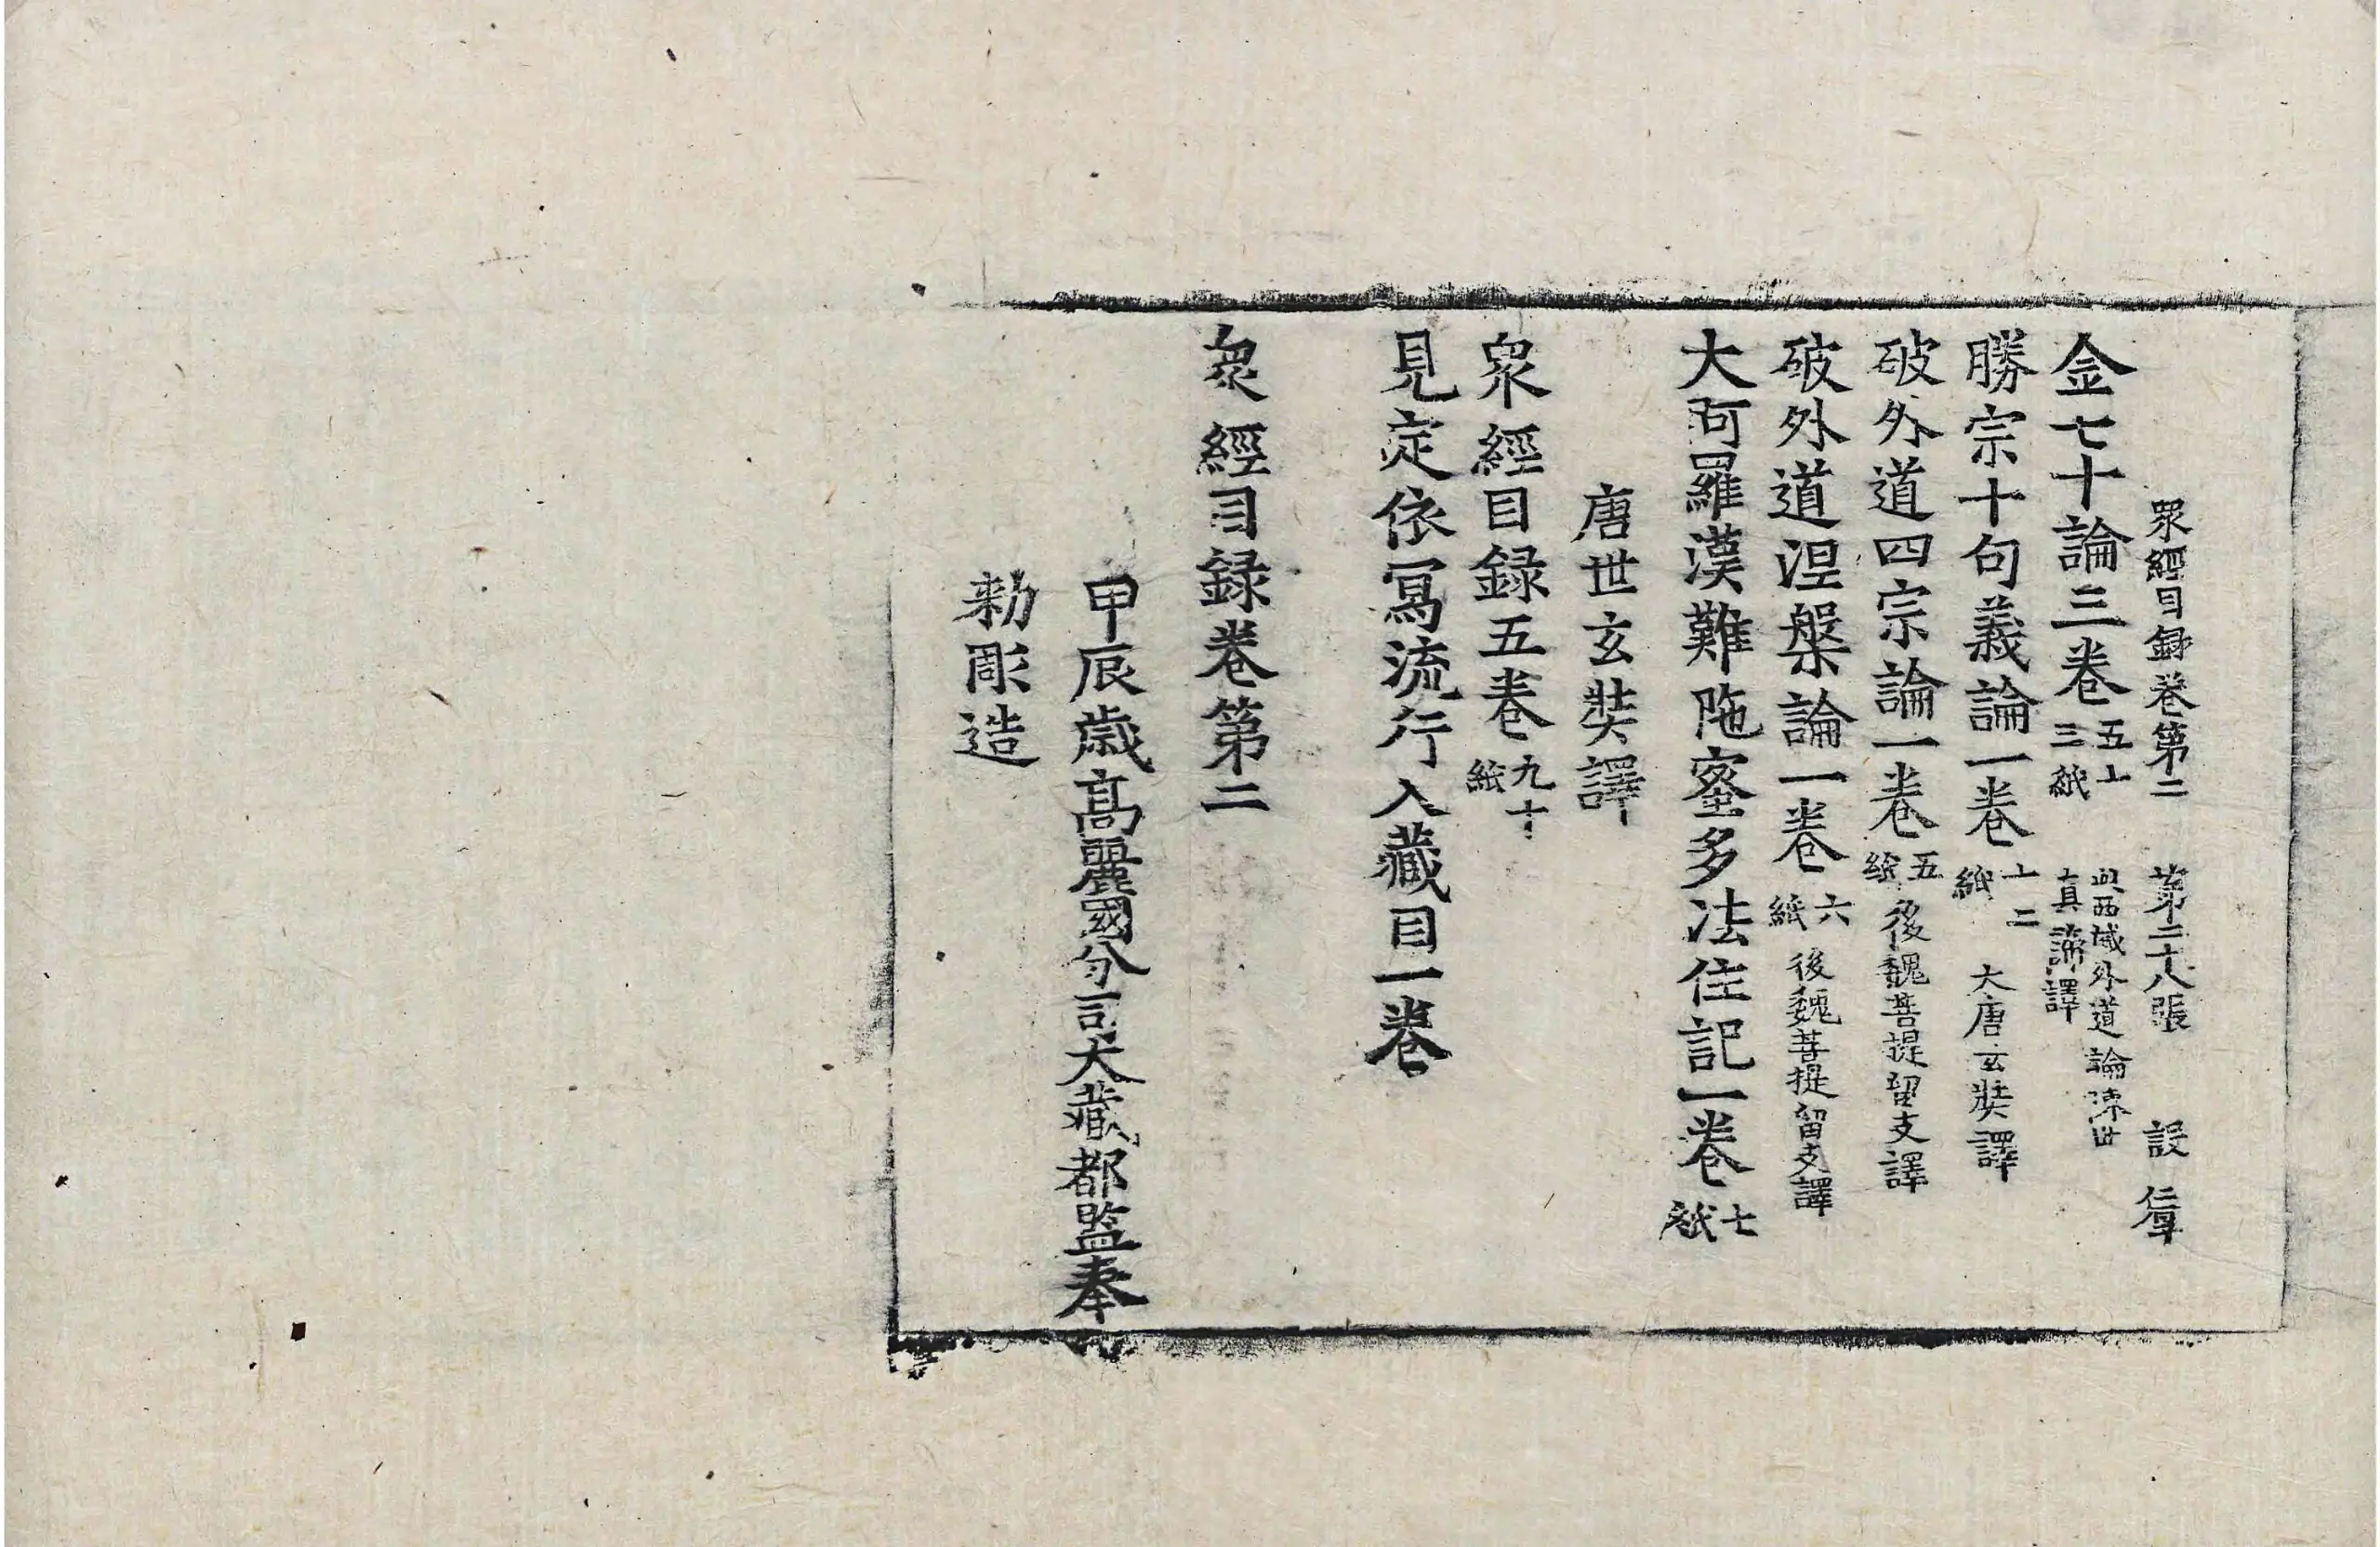 眾經目録卷第二 第二十八張 設
金七十論三卷 五十三紙 此西域外道論陳世真諦譯
勝宗十句義論一卷 十二紙 大唐玄奘譯
破外道四宗論一卷 五紙 後魏菩提留支譯
破外道涅槃論一卷 六紙 後魏菩提留支譯
大阿羅漢難陁蜜多法住記一卷 七紙
唐世玄奘譯
衆經目録五卷 九十紙
見定依寫流行入藏目一卷
衆經目録卷第二
甲辰歳髙麗國分司大藏都監奉
勑彫造